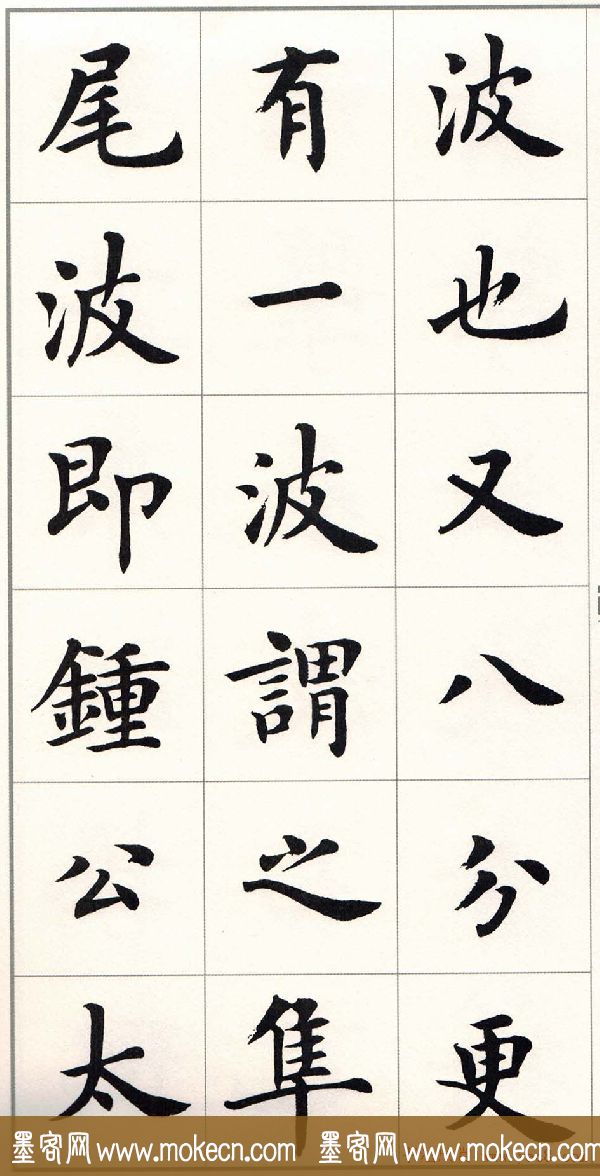 波也又八分更
有一波謂之隼
尾波即鍾公太
墨客网 www.mokecn.com 墨客网 www.mokecn.com